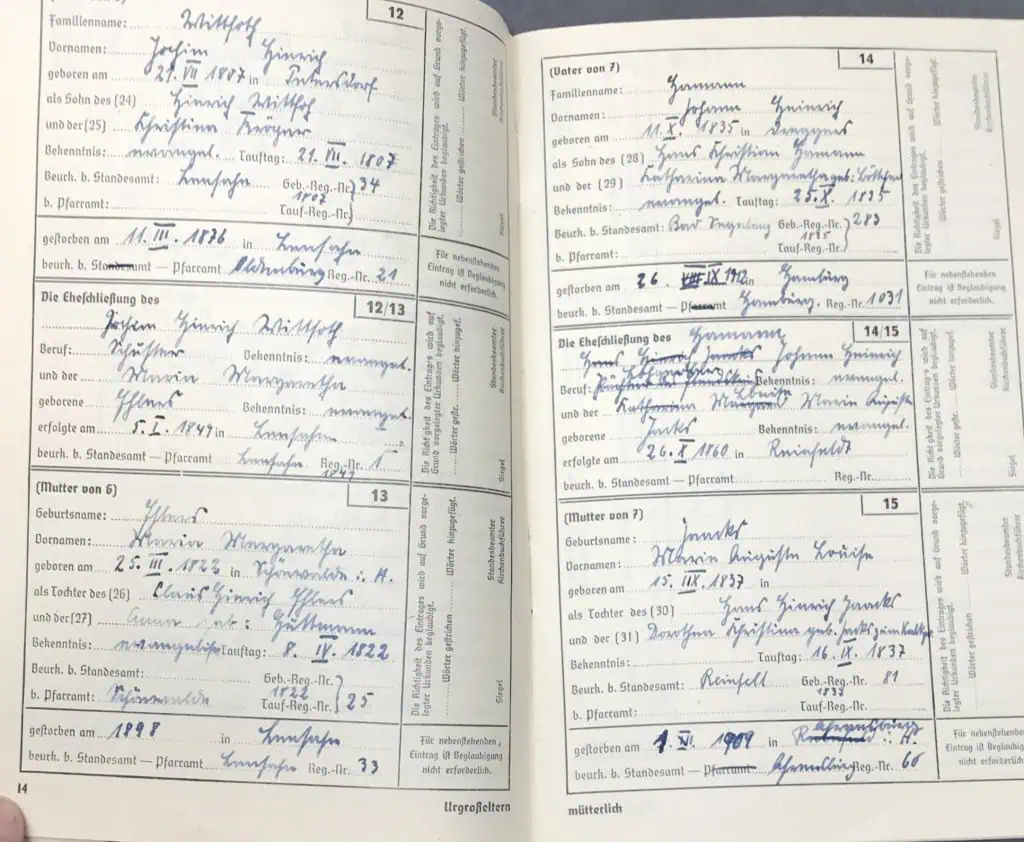 12
Familienname: Witthoth
Vornamen: Jochim Hinrich
geboren am 21. VII 1807 in Petersdorf
als Sohn des (24) Hinrich Witthof
und der (25) Christina Kröger
Bekenntnis: evangel. Tauftag: 21. VII. 1807
Beurk. b. Standesamt: Lensahn Geb.-Reg.-Nr. 34
1807
b. Pfarramt: Tauf-Reg.-Nr.
gestorben am 11. III. 1876 in Lensahn
beurk. b. Standesamt — Pfarramt Oldenburg Reg.-Nr. 21
Die Richtigkeit des Eintrages wird auf Grund vorge-
legter Urkunden beglaubigt.
Wörter gestrichen Wörter hinzugefügt.
Standesbeamte
Kirchenbuchführer
Siegel
Für nebenstehenden
Eintrag ist Beglaubigung
nicht erforderlich.
Die Eheschließung des 12/13
Jochim Hinrich Witthoth
Beruf: Schuster Bekenntnis: evangel.
und der Maria Margaretha
geborene Ehlers Bekenntnis: evangel.
erfolgte am 5. I. 1849 in Lensahn
beurk. b. Standesamt — Pfarramt Lensahn Reg.-Nr. 1
1849
Die Richtigkeit des Eintrags wird auf
Grund vorgelegter Urkunden beglaubigt.
Wörter gestr. Wörter hinzugef.
Standesbeamte
Kirchenbuchführer
Siegel
(Mutter von 6) 13
Geburtsname: Ehlers
Vornamen: Maria Margaretha
geboren am 25. III. 1822 in Schönwalde i. H.
als Tochter des (26) Claus Hinrich Ehlers
und der (27) Anna geb: Hüttmann
Bekenntnis: evangelisch Tauftag: 8. IV. 1822
Beurk. b. Standesamt: Geb.-Reg.-Nr.
1822 25
b. Pfarramt: Schönwalde Tauf-Reg.-Nr.
gestorben am 1898 in Lensahn
beurk. b. Standesamt — Pfarramt Lensahn Reg.-Nr. 33
Die Richtigkeit des Eintrages wird auf Grund vorge-
legter Urkunden beglaubigt.
Wörter gestrichen Wörter hinzugefügt.
Standesbeamte
Kirchenbuchführer
Siegel
Für nebenstehenden
Eintrag ist Beglaubigung
nicht erforderlich.
14
Urgroßeltern
(Vater von 7) 14
Familienname: Hamann
Vornamen: Johann Heinrich
geboren am 11. X. 1835 in
als Sohn des (28) Hans Christian Hamann
und der (29) Katharina Margaretha geb:
Bekenntnis: evangel. Tauftag: 25. X. 1835
Beurk. b. Standesamt: Bad Segeberg Geb.-Reg.-Nr. 283
1835
b. Pfarramt: Tauf-Reg.-Nr.
gestorben am 26. IX 1912 in Hamburg
beurk. b. Standesamt — Pfarramt Hamburg. Reg.-Nr. 1031
Die Richtigkeit des Eintrages wird auf Grund vorge-
legter Urkunden beglaubigt.
Wörter gestrichen Wörter hinzugefügt.
Standesbeamte
Kirchenbuchführer
Siegel
Für nebenstehenden
Eintrag ist Beglaubigung
nicht erforderlich.
Die Eheschließung des Hamann 14/15
Hans Hinrich Jaacks Johann Heinrich
Beruf: Bekenntnis: evangel.
Louise
und der Katharina Margareta Marie Auguste
geborene Jaacks Bekenntnis: evangel.
erfolgte am 26. X 1860 in Reinfeldt
beurk. b. Standesamt — Pfarramt Reg.-Nr.
Die Richtigkeit des Eintrages wird auf
Grund vorgelegter Urkunden beglaubigt.
Wörter gestr. Wörter hinzugef.
Standesbeamte
Kirchenbuchführer
Siegel
(Mutter von 7) 15
Geburtsname: Jaacks
Vornamen: Marie Auguste Louise
geboren am 15. IIX. 1837 in
als Tochter des (30) Hans Hinrich Jaacks
und der (31) Dorothea Christina geb. Jacks
Bekenntnis: Tauftag: 16. IX. 1837
Beurk. b. Standesamt: Reinfelt Geb.-Reg.-Nr. 81
1837
b. Pfarramt: Tauf-Reg.-Nr.
Ahrensburg
gestorben am 1. XI. 1909 in i. H.
beurk. b. Standesamt — Pfarramt Ahrensburg Reg.-Nr. 60
Die Richtigkeit des Eintrages wird auf Grund vorge-
legter Urkunden beglaubigt.
Wörter gestrichen Wörter hinzugefügt.
Standesbeamte
Kirchenbuchführer
Siegel
Für nebenstehenden
Eintrag ist Beglaubigung
nicht erforderlich.
mütterlich